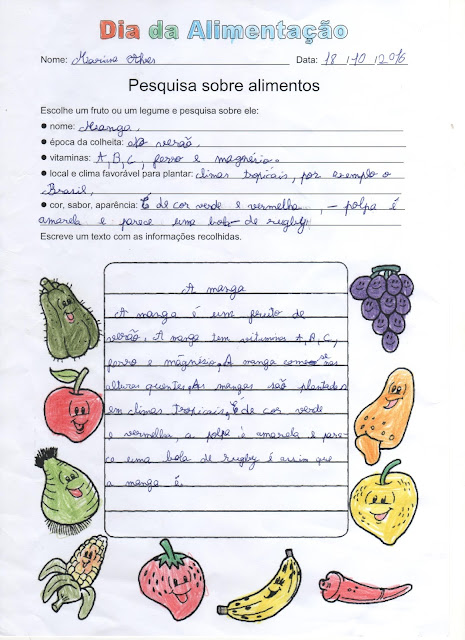 Dia da Alimentação
Nome: Marina Alves Data: 18 / 10 / 2016
Pesquisa sobre alimentos
Escolhe um fruto ou um legume e pesquisa sobre ele:
● nome: Manga.
● época da colheita: No verão.
● vitaminas: A, B, C, ferro e magnésio.
● local e clima favorável para plantar: climas tropicais, por exemplo o
Brasil.
● cor, sabor, aparência: É de cor verde e vermelha, – polpa é
amarela e parece uma bola de rugby.
Escreve um texto com as informações recolhidas.
A manga
A manga é um fruito de
verão. A manga tem vitaminas A, B, C,
ferro e mágnésio. A manga come-se nas
alturas quentes. As mangas são plantadas
em climas tropicais. É de cor verde
e vermelha, a polpa é amarela e pare-
ce uma bola de rugby é assim que
a manga é.